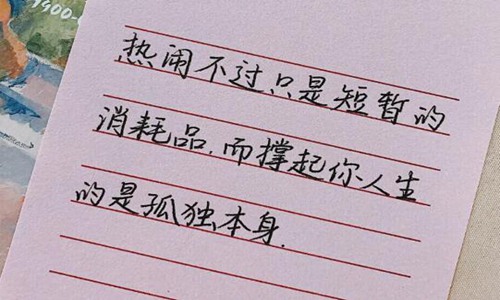 1900-
热闹不过只是短暂的
消耗品,而撑起你人生
的是孤独本身.